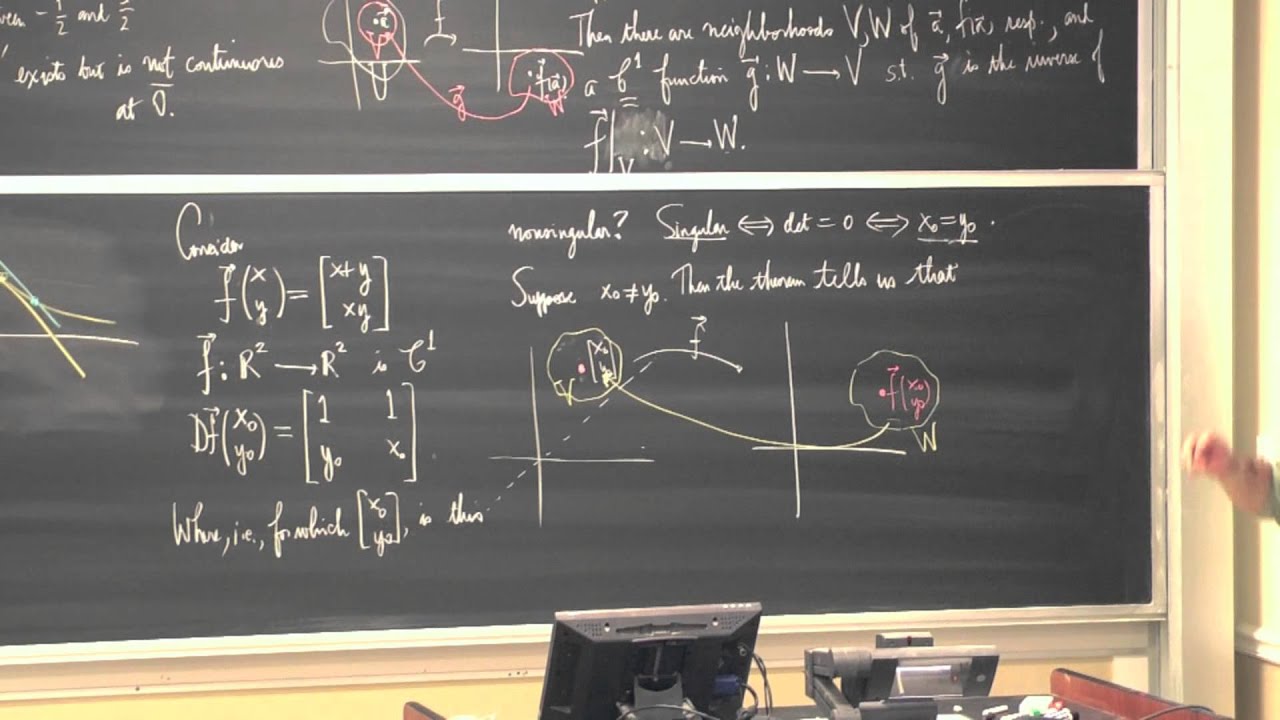 -1/2 and 3/2
exists but is not continuous
at 0⃗.
a⃗
f⃗
f⃗(a⃗)
W
V
g⃗
Then there are neighborhoods V, W of a⃗, f⃗(a⃗), resp., and
a C¹ function g⃗ : W → V s.t. g⃗ is the inverse of
f⃗|_V : V → W.
Consider
f⃗(x y) = [x+y xy]
f⃗ : R² → R² is C¹
Df⃗(x₀ y₀) = [1 1 y₀ x₀].
Where, i.e., for which [x₀ y₀], is this
nonsingular? Singular ⇔ det = 0 ⇔ x₀=y₀.
Suppose x₀ ≠ y₀. Then the theorem tells us that
[x₀ y₀]
V
f⃗
f⃗(x₀ y₀)
W